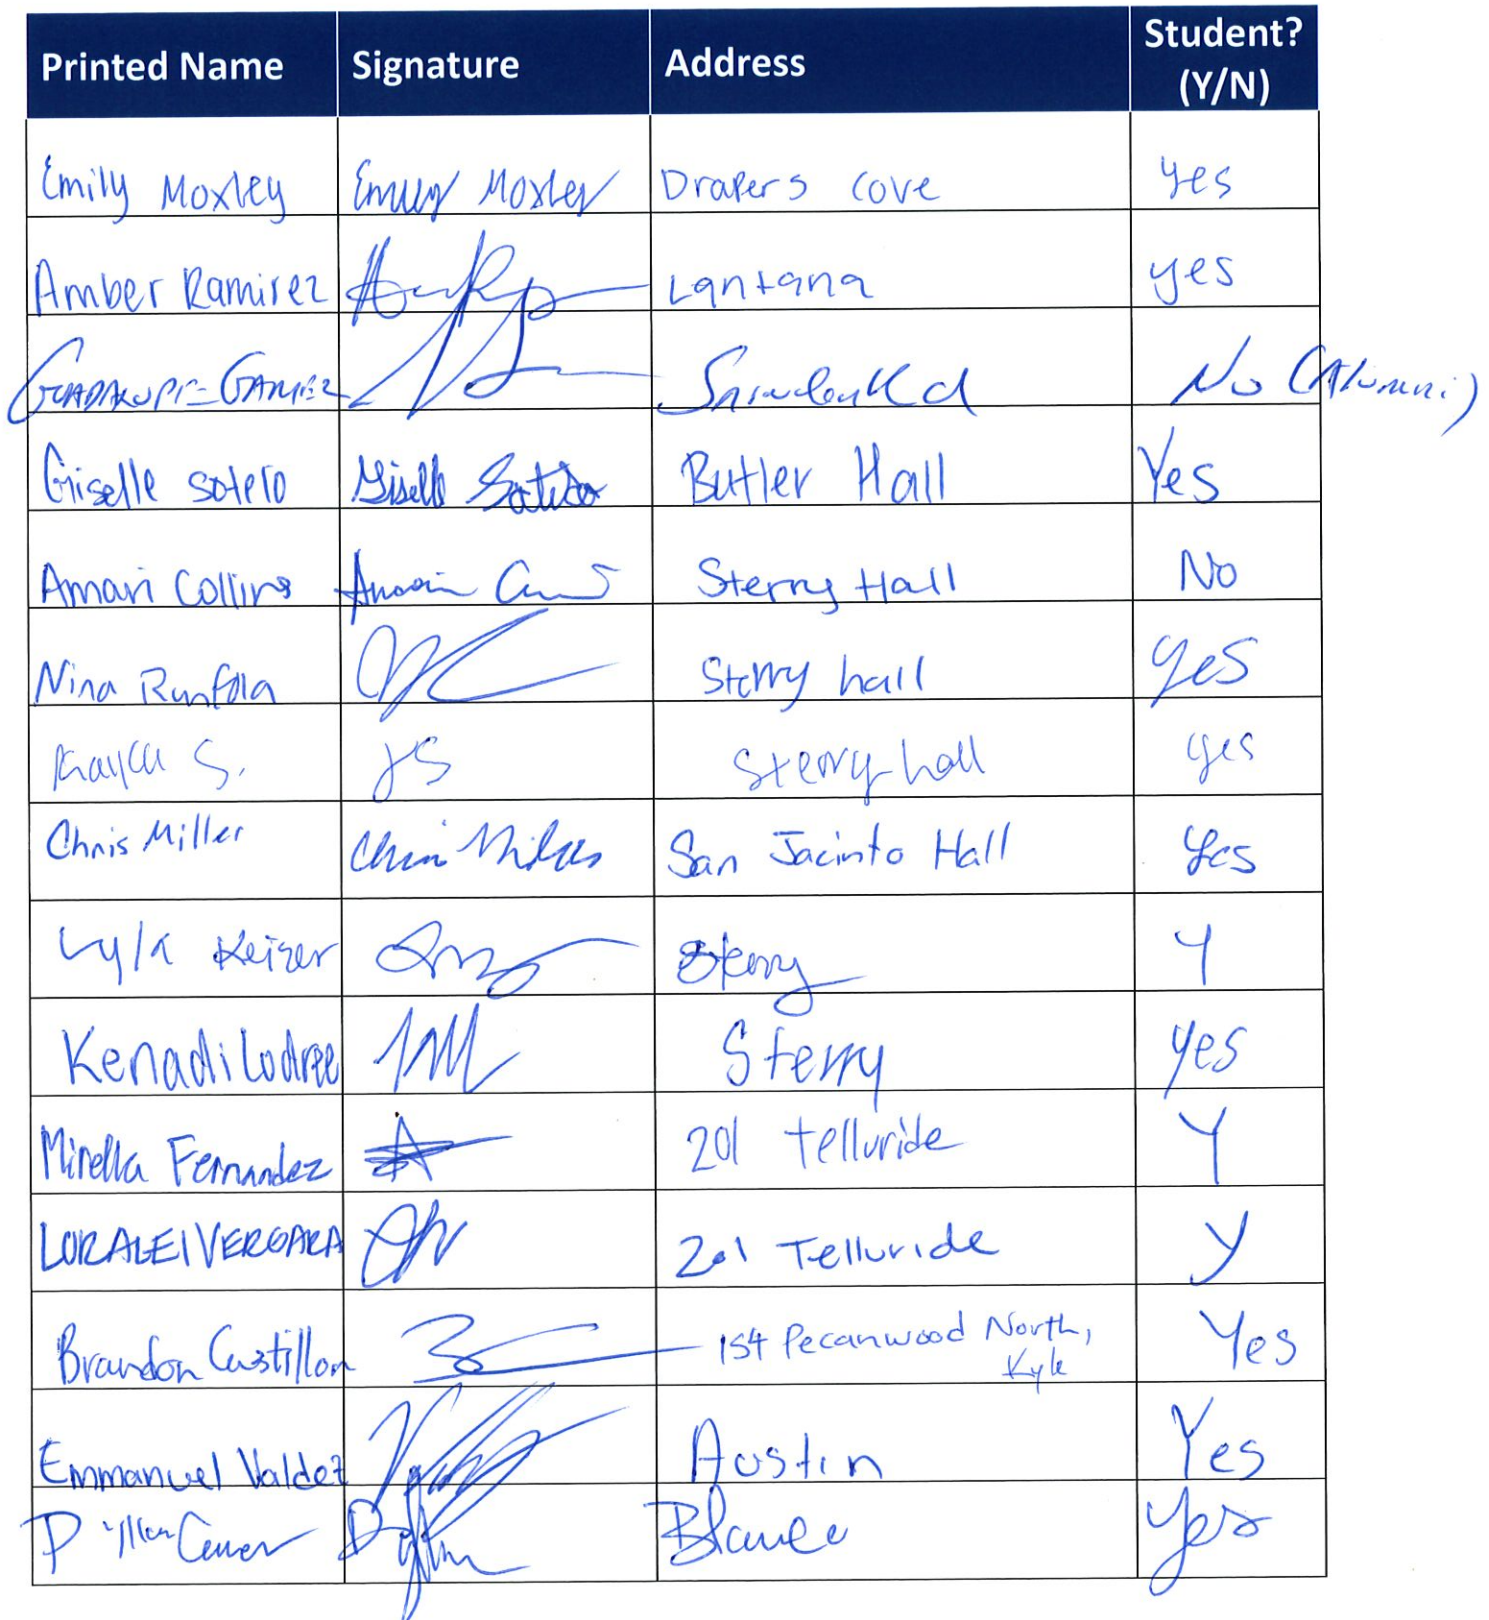 Printed Name Signature Address Student? (Y/N)
Emily Moxley Emily Moxley Drapers Cove yes
Amber Ramirez Lantana yes
Guadalupe Gamez No (Alumni)
Giselle sotelo Giselle Sotelo Butler Hall Yes
Amari Collins Sterry Hall No
Nina Runfola Sterry hall yes
Kayla S. KS Sterry hall yes
Chris Miller Chris Miller San Jacinto Hall Yes
Lyla Keizer Sterry Y
Kenadi Lodree Sterry yes
Mirella Fernandez 201 telluride Y
LORALEI VERGARA 201 Telluride y
Brandon Castillon 154 Pecanwood North, Kyle Yes
Emmanuel Valdez Austin Yes
Blanco yes